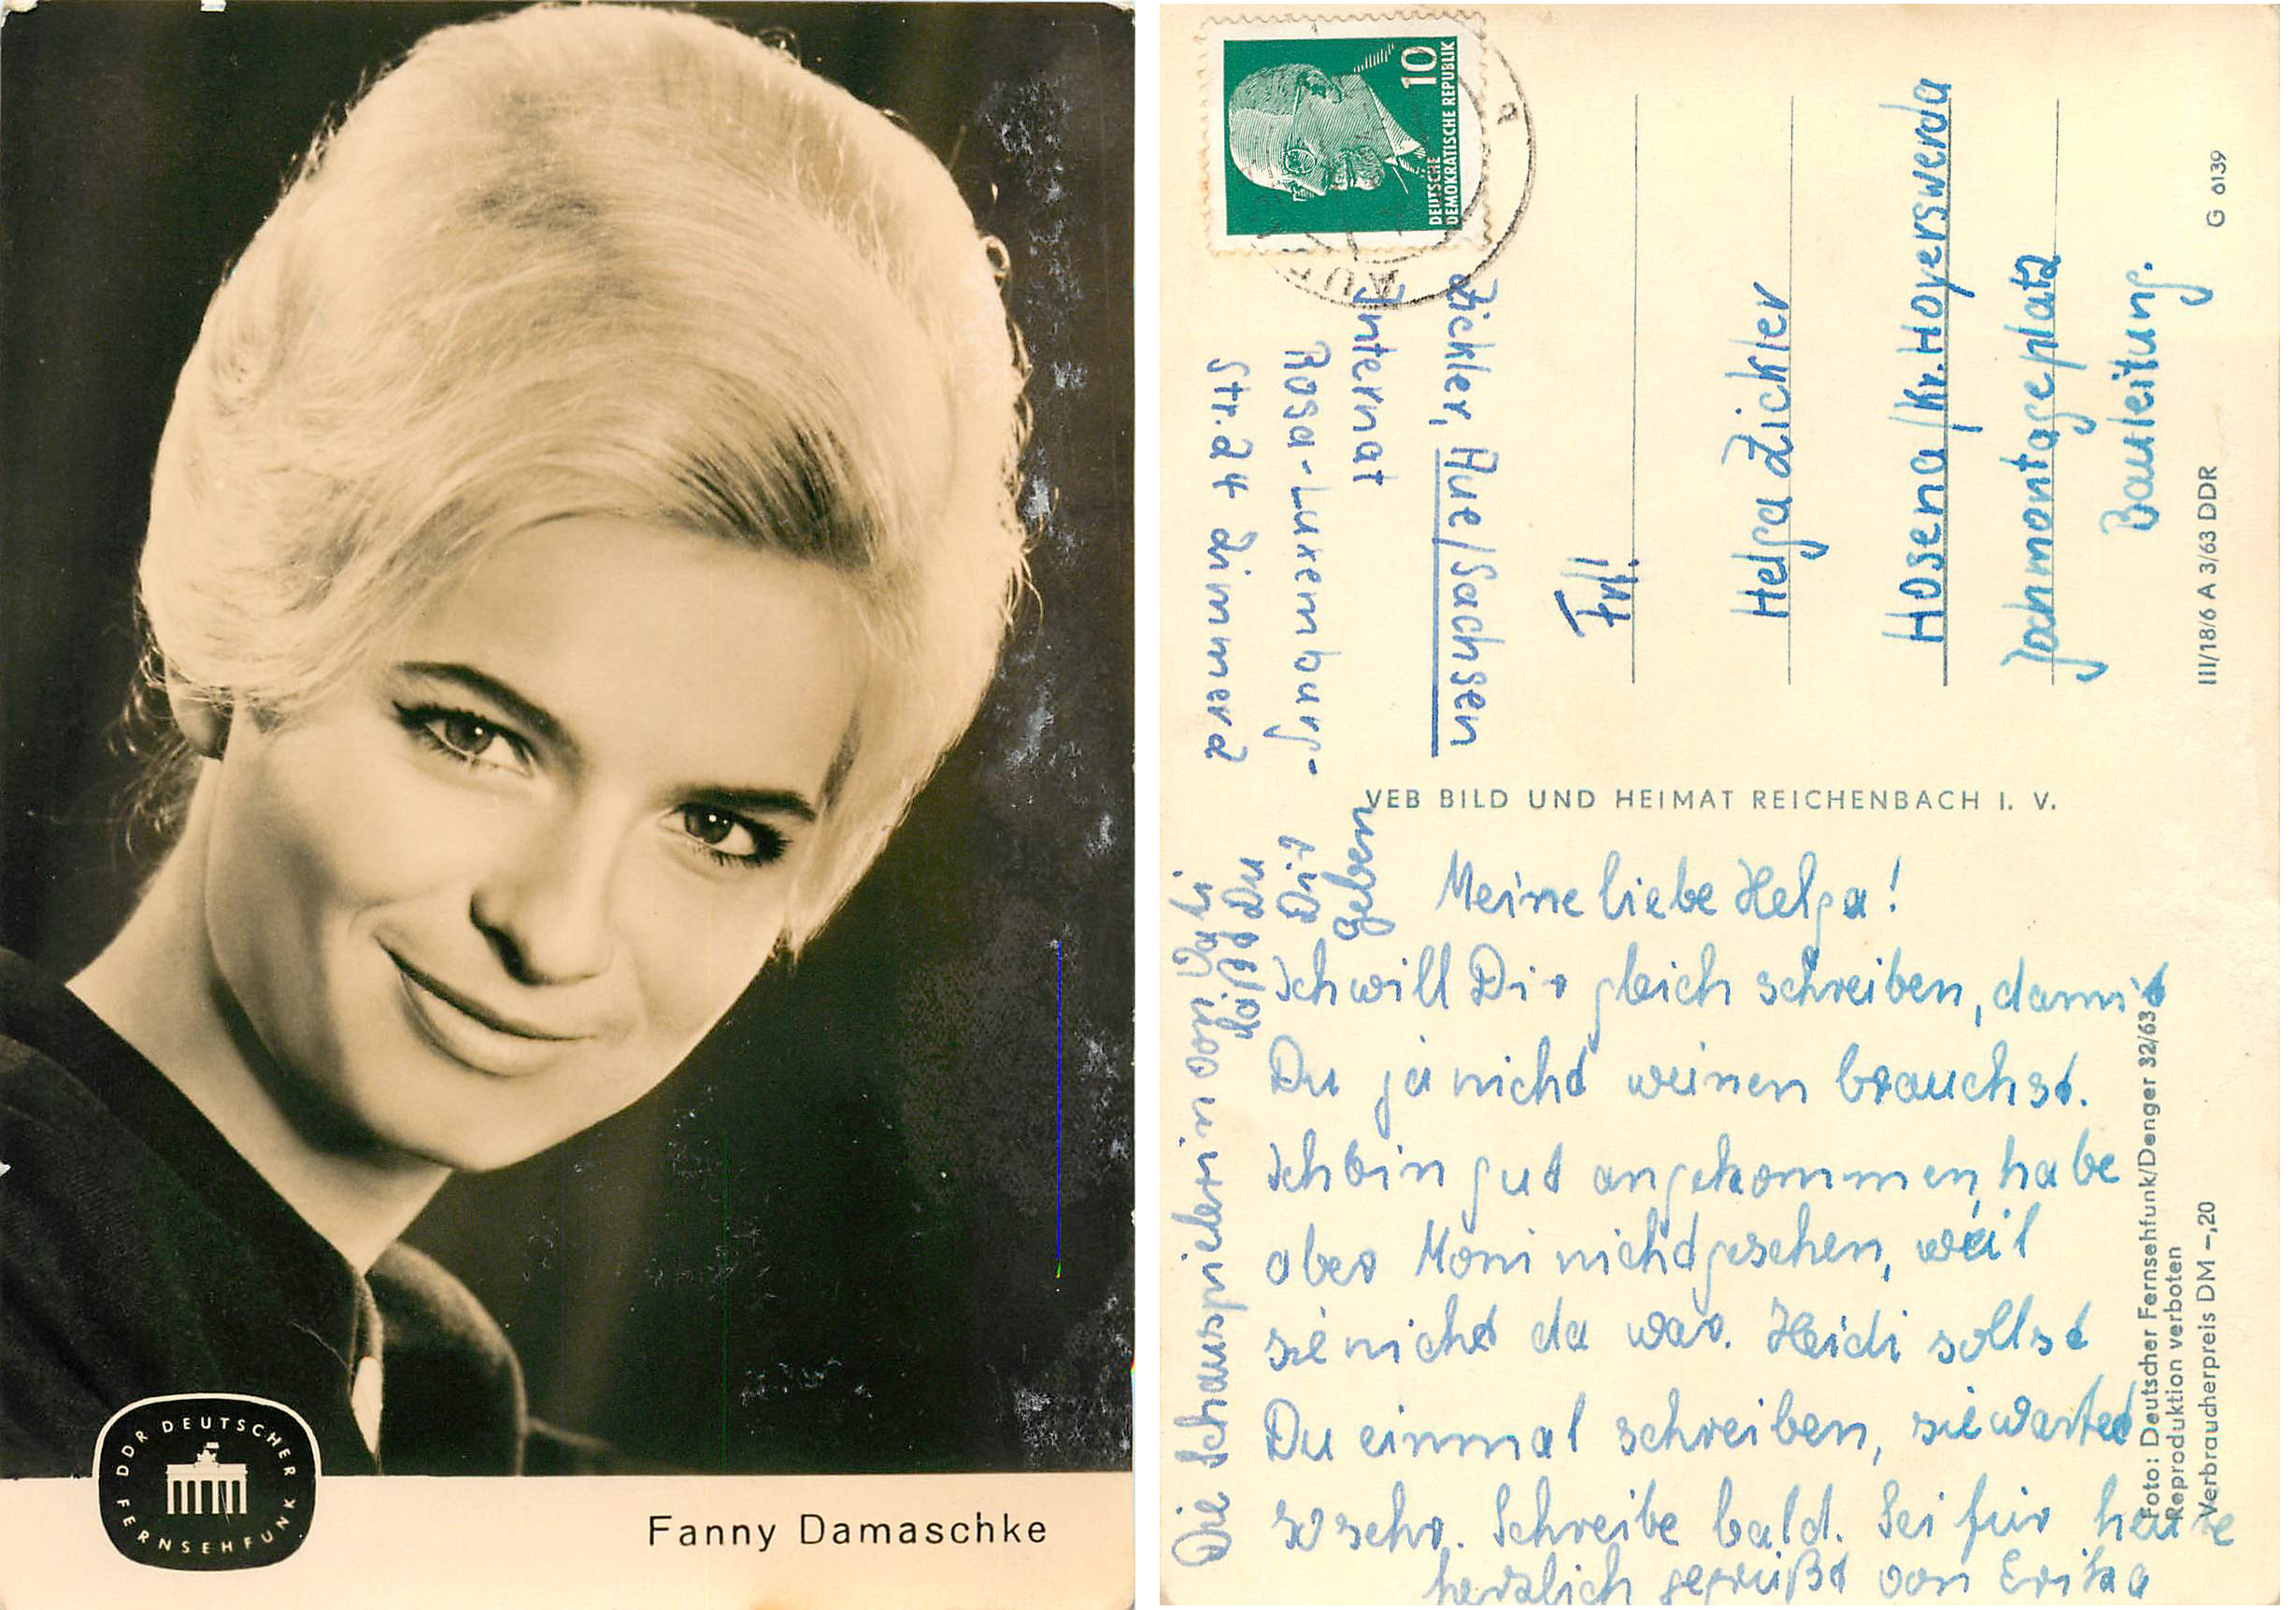 DDR DEUTSCHER FERNSEHFUNK
Fanny Damaschke
10
DEUTSCHE
DEMOKRATISCHE REPUBLIK
AUE
a
Zickler, Aue/Sachsen
Internat
Rosa-Luxemburg-
Str. 24 Zimmer 2
Frl.
Helga Zickler
Hosena/Kr. Hoyerswerda
Montageplatz
Bauleitung.
III/18/6 A 3/63 DDR
G 6139
VEB BILD UND HEIMAT REICHENBACH I. V.
Meine liebe Helga!
Ich will Dir gleich schreiben, damit
Du ja nicht weinen brauchst.
Ich bin gut angekommen, habe
aber Moni nicht gesehen, weil
sie nicht da war. Heidi sollst
Du einmal schreiben, sie wartet
so sehr. Schreibe bald. Sei für heute
herzlich gegrüßt von Erika
Die Schauspielerin von
Du
Dir
geben
Foto: Deutscher Fernsehfunk/Denger 32/63
Reproduktion verboten
Verbraucherpreis DM -,20